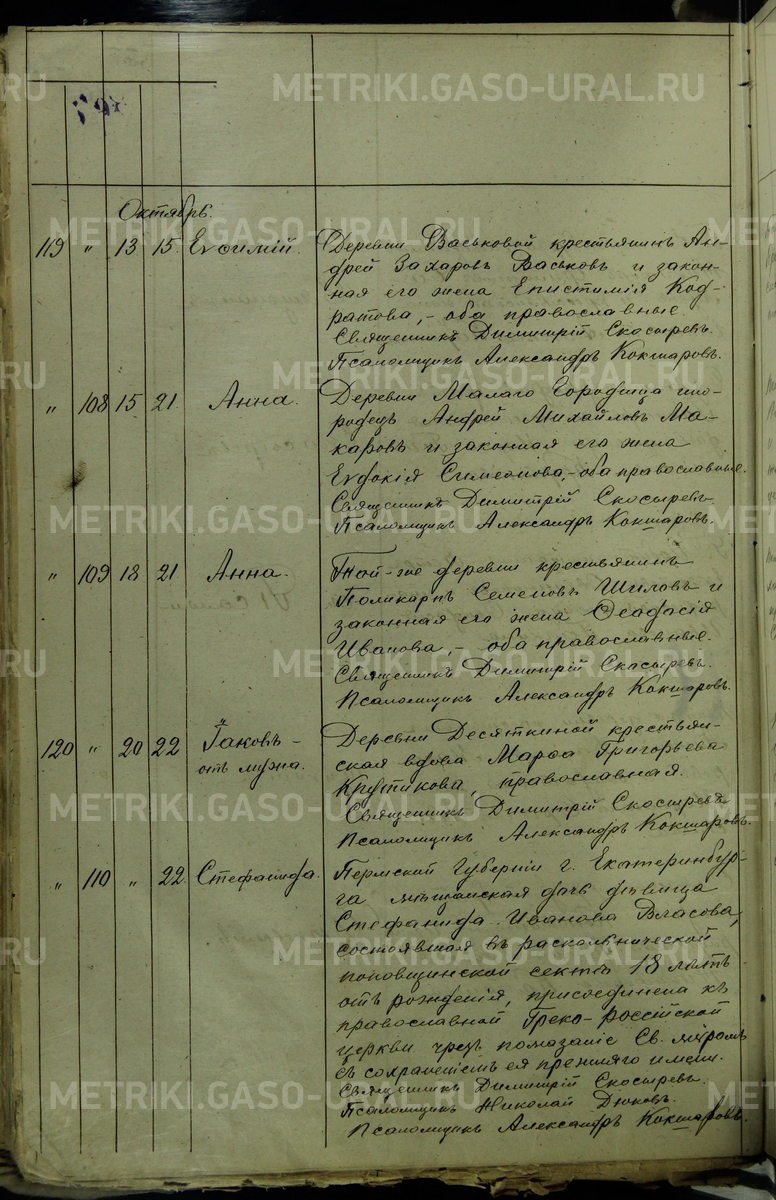 Октябрь.
119 " 13 15. Еvѳимій. Деревни Васьковой крестьянинъ Ан-
дрей Захаровъ Васьковъ и закон-
ная его жена Епистимія Код-
ратова, - оба православные.
Священникъ Димитрій Скосыревъ.
Псаломщикъ Александръ Кокшаровъ.
" 108 15 21 Анна. Деревни Малаго Городища ино-
родецъ Андрей Михайловъ Ма-
каровъ и законная его жена
Еvдокія Симеонова, - оба православные.
Священникъ Димитрій Скосыревъ
Псаломщикъ Александръ Кокшаровъ.
" 109 18 21 Анна. Той-же деревни крестьянинъ
Поликарпъ Семеновъ Шиловъ и
законная его жена Ѳеодосія
Иванова, - оба православные.
Священникъ Димитрій Скосыревъ.
Псаломщикъ Александръ Кокшаровъ.
120 " 20 22 Іаковъ - Деревни Десяткиной крестьян-
отъ мужа. ская вдова Марѳа Григорьева
Крутикова, православная.
Священникъ Димитрій Скосыревъ
Псаломщикъ Александръ Кокшаровъ.
" 110 " 22 Стефанида. Пермской Губерніи г. Екатеринбур-
га мѣщанская дочь дѣвица
Стефанида Иванова Власова,
состоявшая въ раскольнической
поповщинской сектѣ 18 лѣтъ
отъ рожденія, присоединена къ
православной Греко-Россійской
церкви чрезъ помазаніе Св. мѵромъ
съ сохраненіемъ ея прежняго имени.
Священникъ Димитрій Скосыревъ.
Псаломщикъ Николай Дюковъ.
Псаломщикъ Александръ Кокшаровъ.
METRIKI.GASO-URAL.RU